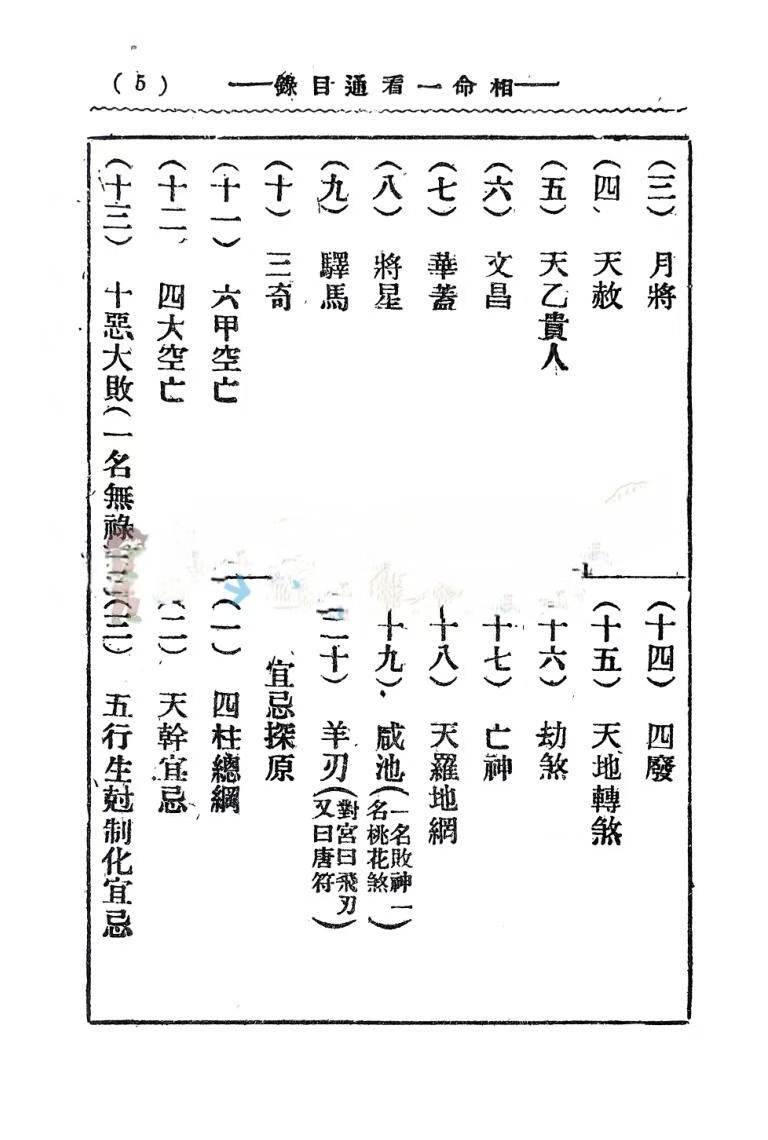 相命一看通目錄
(5)
(三) 月將
(四 天赦
(五) 天乙貴人
(六) 文昌
(七) 華蓋
(八) 將星
(九) 驛馬
(十) 三奇
(十一) 六甲空亡
(十二 四大空亡
(十三) 十惡大敗(一名無祿
(十四) 四廢
(十五) 天地轉煞
十六) 劫煞
十七) 亡神
十八) 天羅地網
十九) 咸池(一名敗神一名桃花煞)
二十) 羊刃(對宮曰飛刃又曰唐符)
宜忌探原
(一) 四柱總綱
(二) 天幹宜忌
(三) 五行生尅制化宜忌